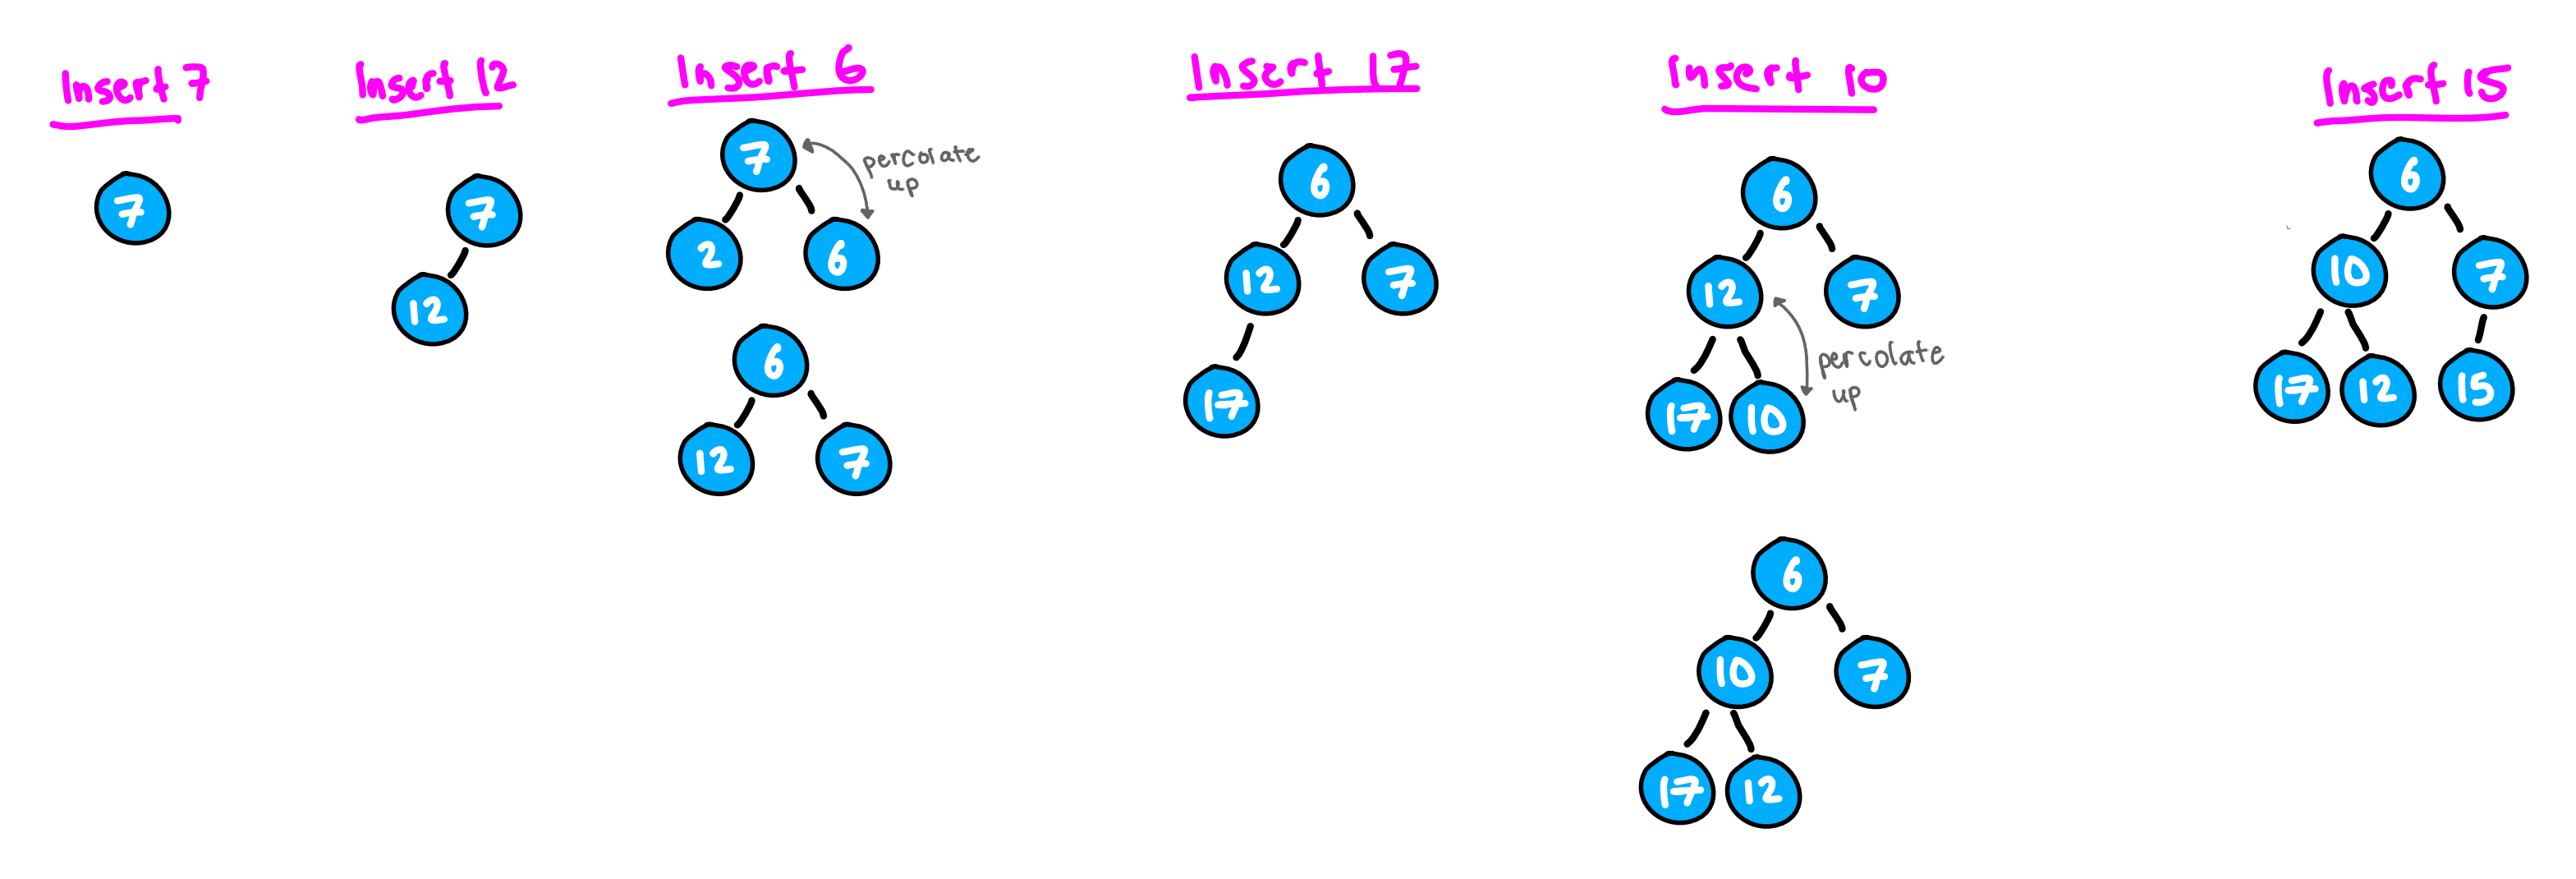 Insert 7
7
Insert 12
7
12
Insert 6
7
percolate
up
2 6
6
12 7
Insert 17
6
12 7
17
Insert 10
6
12 7
percolate
up
17 10
6
10 7
17 12
Insert 15
6
10 7
17 12 15